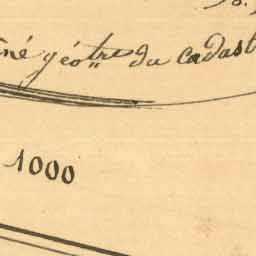 géotre du Cadast
1000